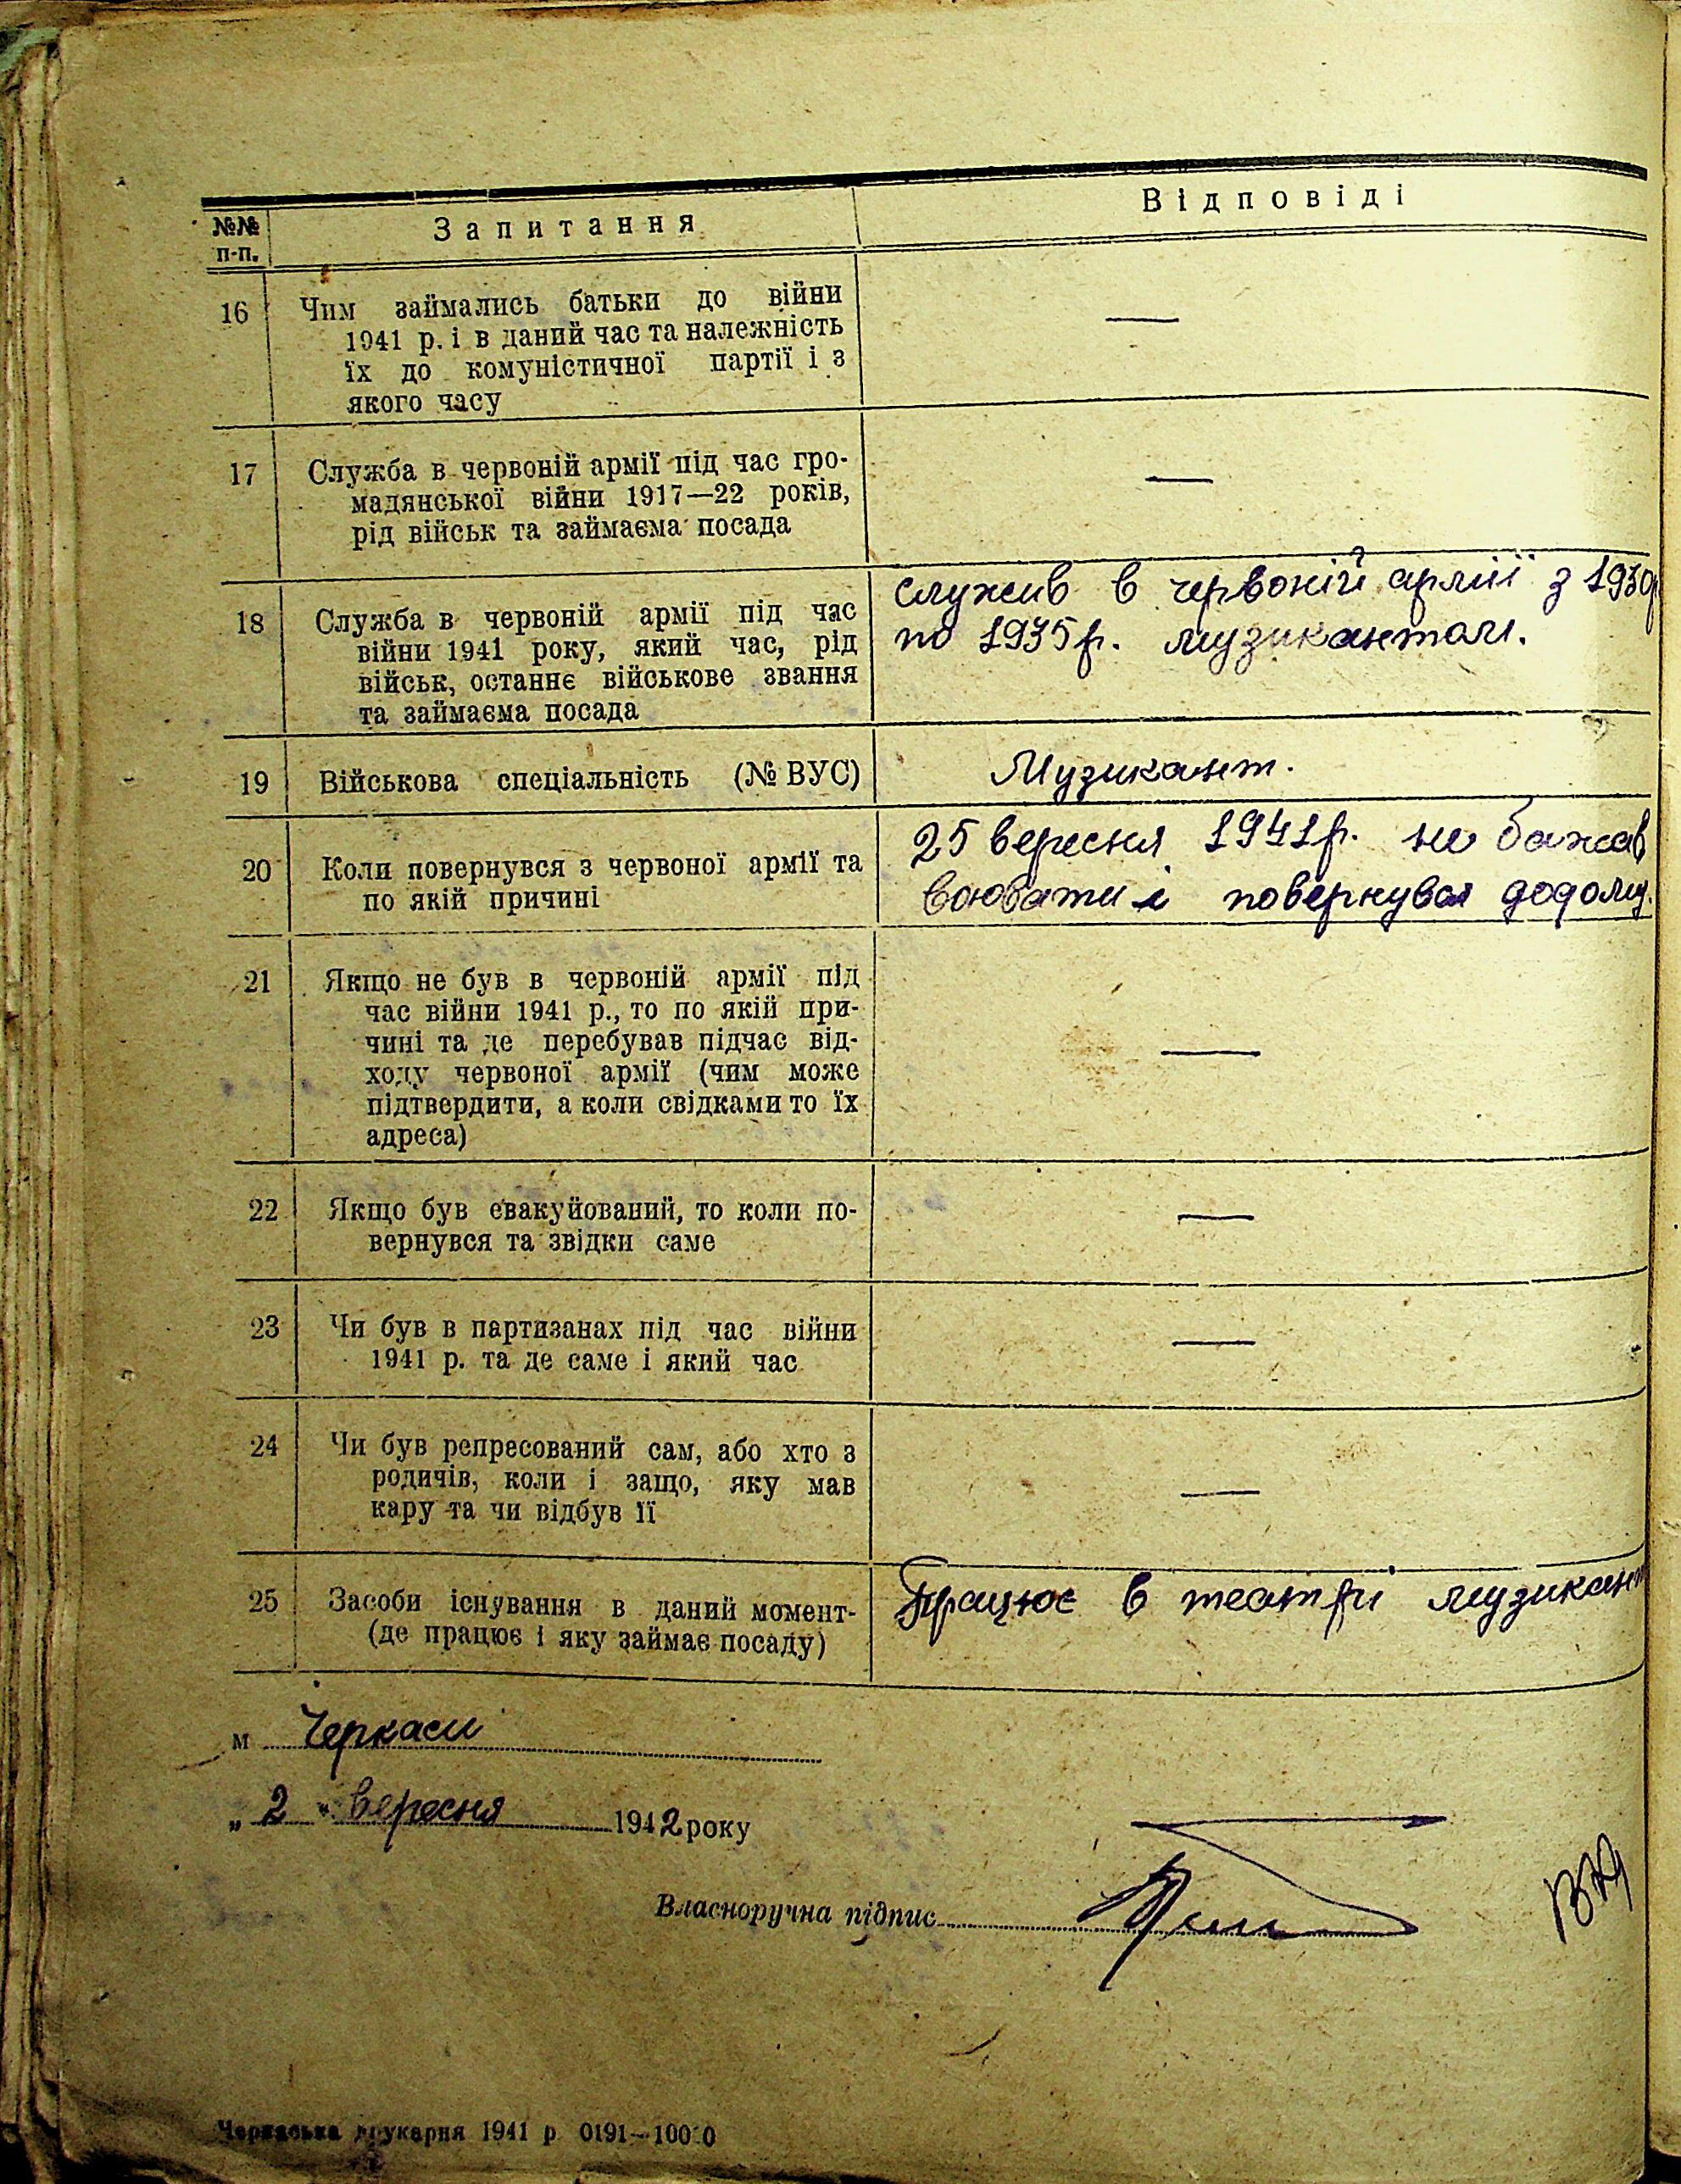 №№ п-п.
Запитання
Відповіді
16
Чим займались батьки до війни
1941 р. і в даний час та належність
їх до комуністичної партії і з
якого часу
—
17
Служба в червоній армії під час гро-
мадянської війни 1917—22 років,
рід військ та займаєма посада
—
18
Служба в червоній армії під час
війни 1941 року, який час, рід
військ, останнє військове звання
та займаєма посада
служив в червоній армії з 1930р
по 1935р. музикантом.
19
Військова спеціальність (№ ВУС)
Музикант.
20
Коли повернувся з червоної армії та
по якій причині
25 вересня 1941р. не бажав
воювати і повернувся додому.
21
Якщо не був в червоній армії під
час війни 1941 р., то по якій при-
чині та де перебував підчас від-
ходу червоної армії (чим може
підтвердити, а коли свідками то їх
адреса)
—
22
Якщо був евакуйований, то коли по-
вернувся та звідки саме
—
23
Чи був в партизанах під час війни
1941 р. та де саме і який час
—
24
Чи був репресований сам, або хто з
родичів, коли і защо, яку мав
кару та чи відбув її
—
25
Засоби існування в даний момент-
(де працює і яку займає посаду)
Працює в театрі музикант
м Черкаси
„ 2 " вересня 1942 року
Власноручна підпис
Черкаська друкарня 1941 р 0191—10000